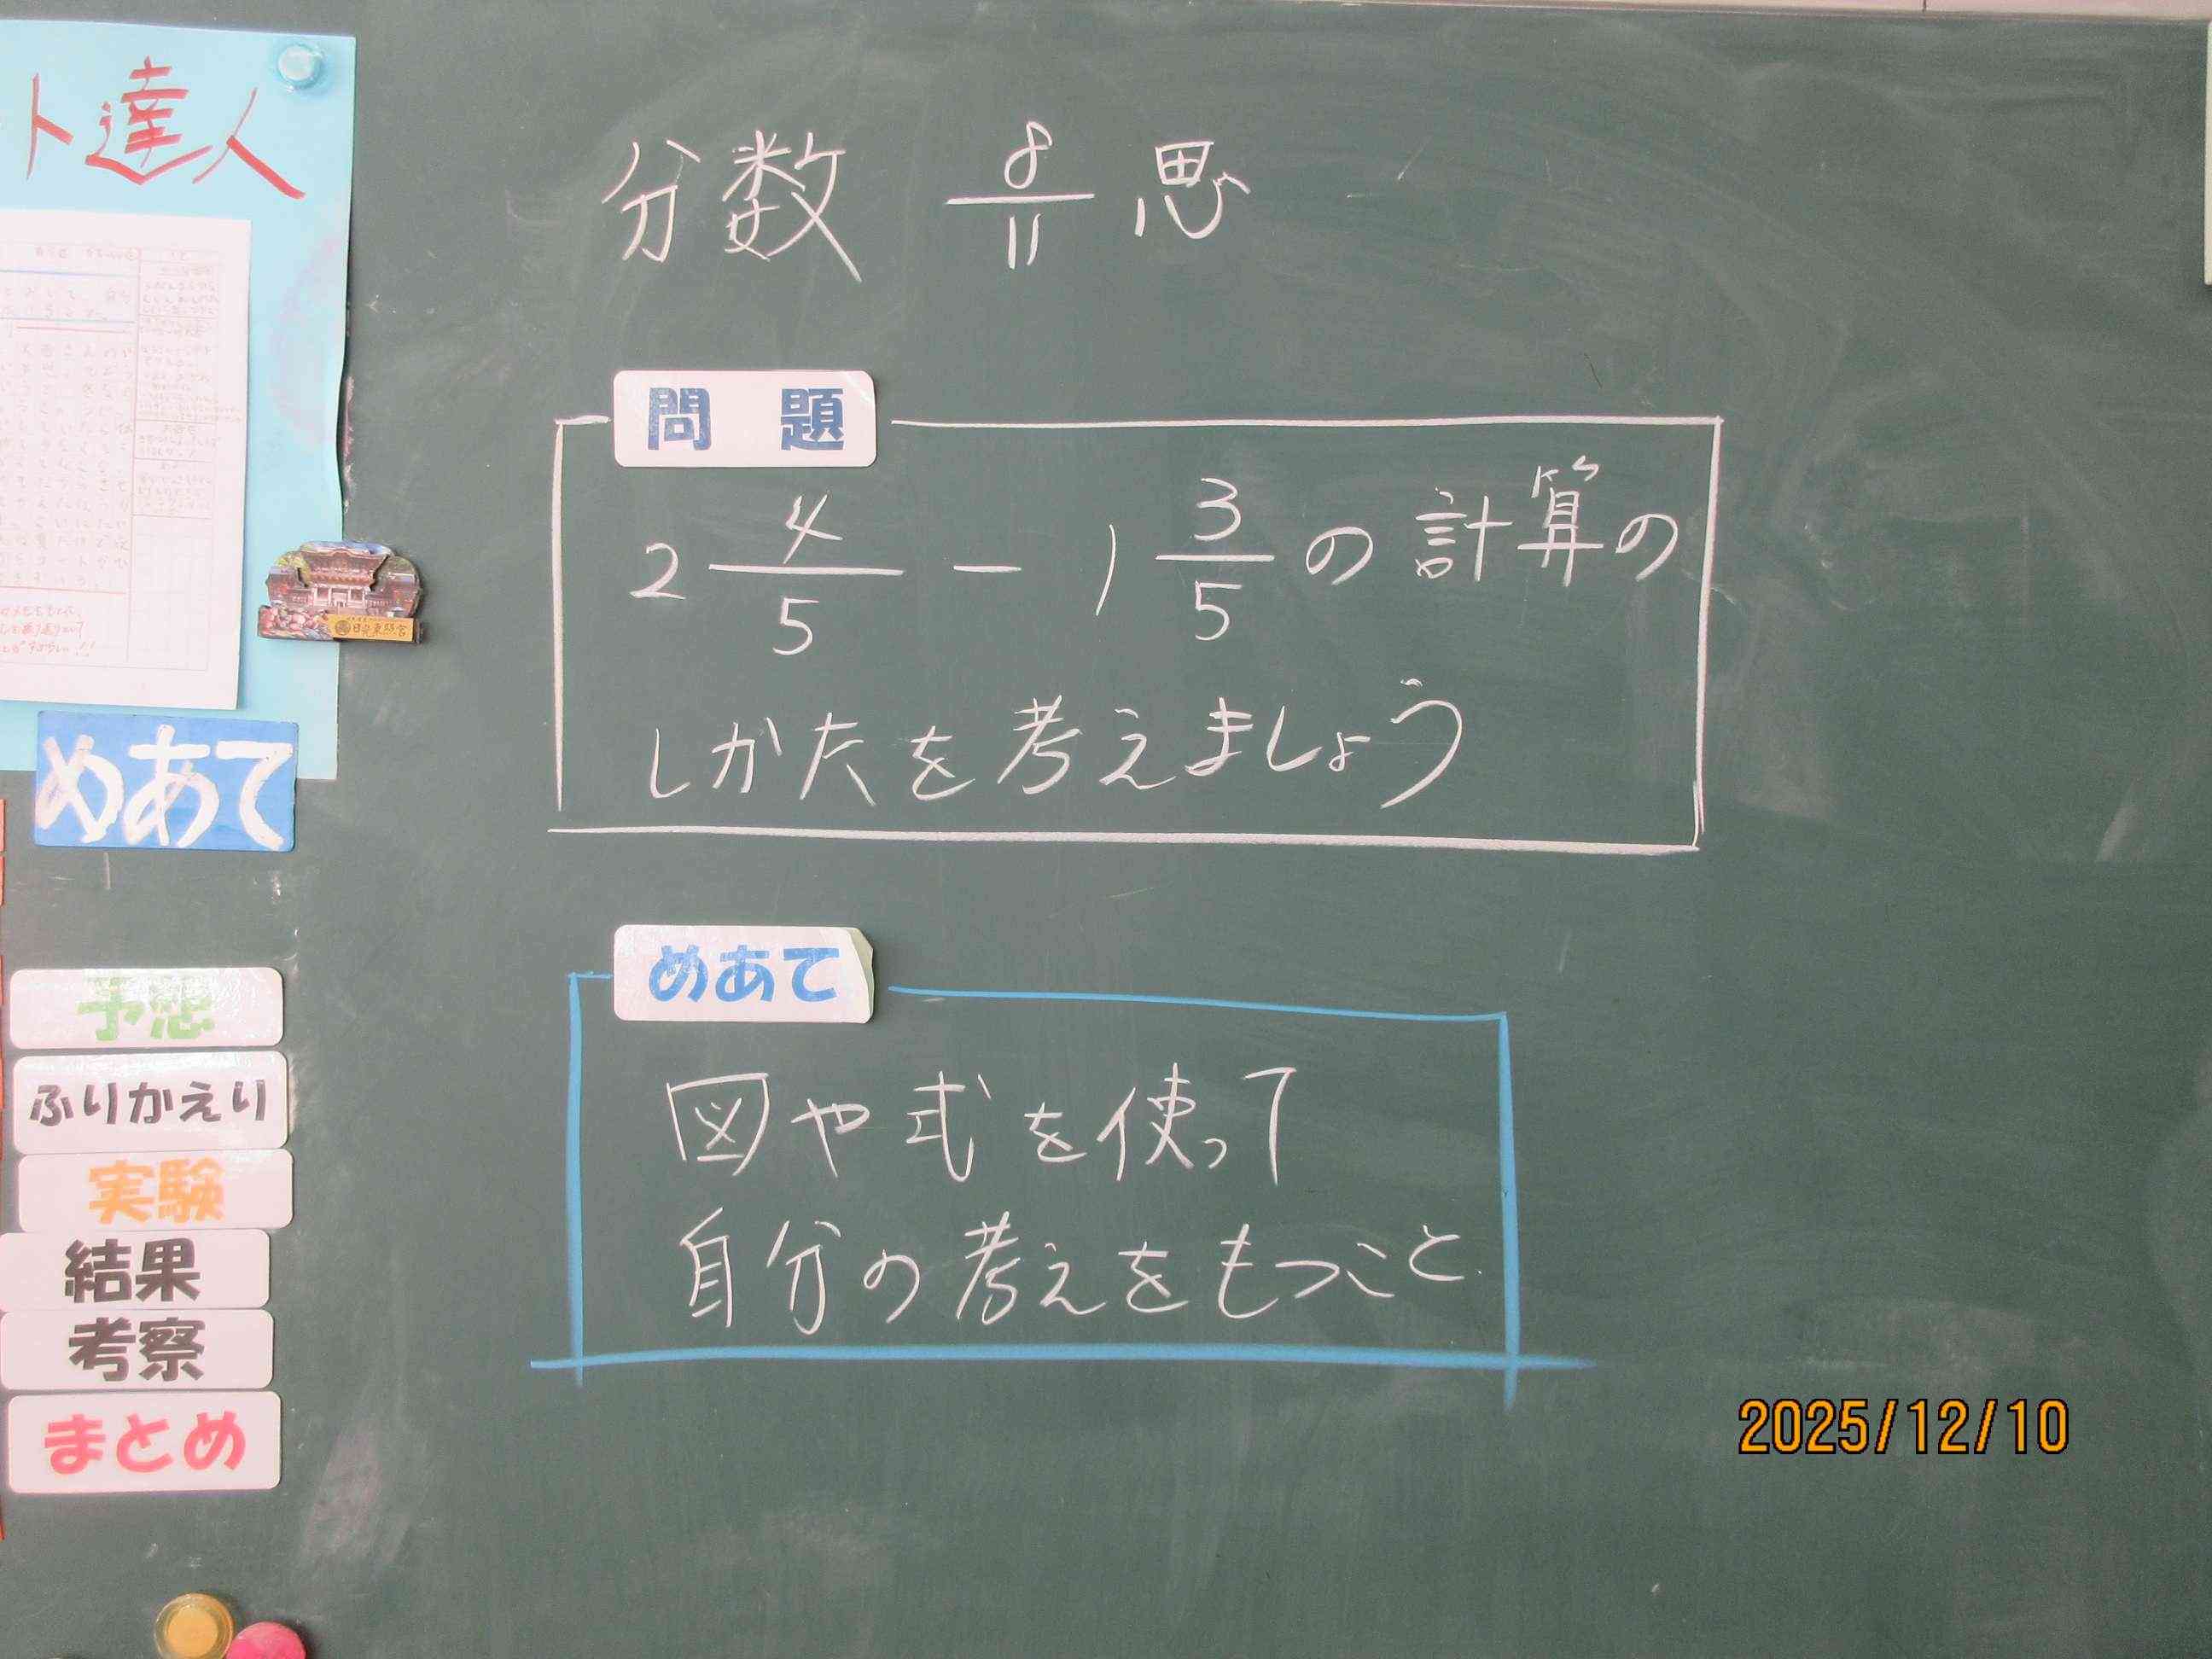 ト達人
分数 8/11 思
問題
2 4/5 － 1 3/5 の計算の
しかたを考えましょう
日光東照宮
めあて
めあて
図や式を使って
自分の考えをもつこと
予想
ふりかえり
実験
結果
考察
まとめ
2025/12/10